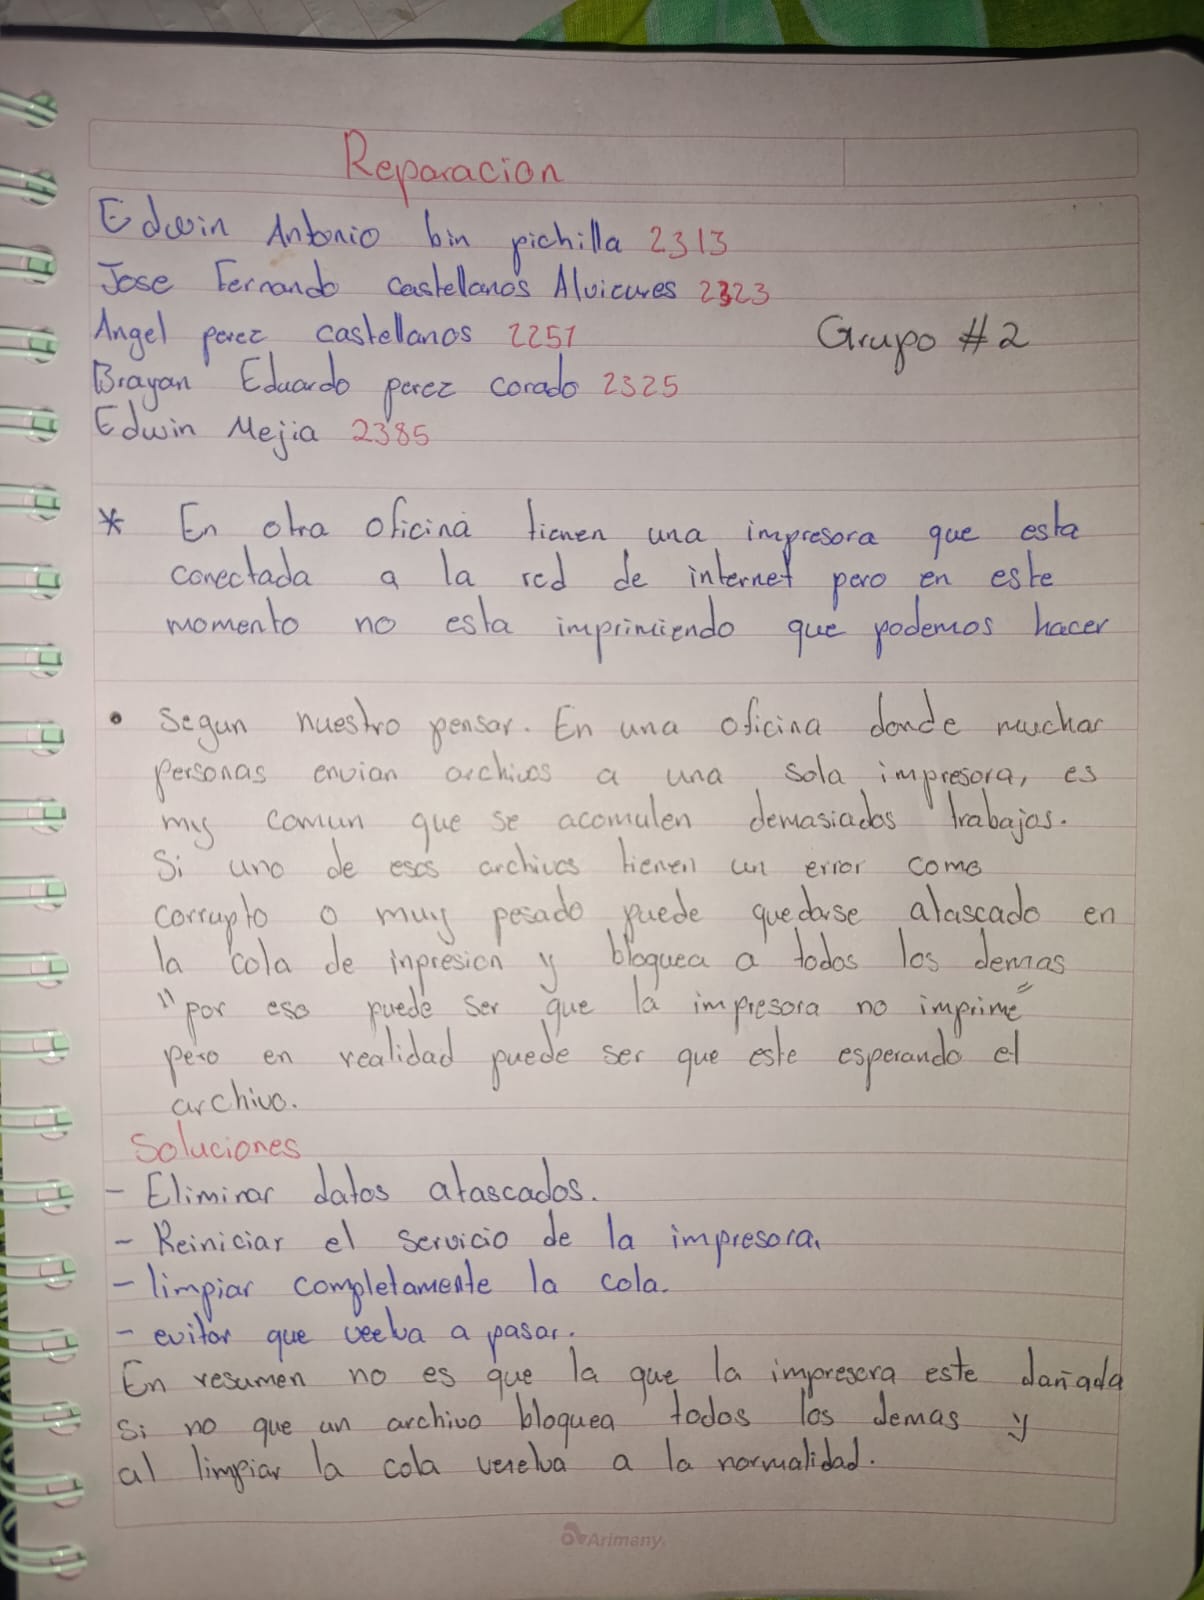 Reparacion
Edwin Antonio bin pichilla 2313
Jose Fernando castellanos Alvicures 2323
Angel perez castellanos 2251
Grupo #2
Brayan Eduardo perez corado 2325
Edwin Mejia 2385
* En otra oficina tienen una impresora que esta
conectada a la red de internet pero en este
momento no esta imprimiendo que podemos hacer
• Segun nuestro pensar. En una oficina donde muchas
personas envian archivos a una sola impresora, es
muy comun que se acomulen demasiados trabajos.
Si uno de esos archivos tienen un error como
corrupto o muy pesado puede quedarse atascado en
la cola de inpresion y bloquea a todos los demas
"por eso puede ser que la impresora no imprime"
pero en realidad puede ser que este esperando el
archivo.
Soluciones
- Eliminar datos atascados.
- Reiniciar el servicio de la impresora.
- limpiar completamente la cola.
- evitar que veelva a pasar.
En resumen no es que la que la impresora este dañada
si no que un archivo bloquea todos los demas y
al limpiar la cola veuelva a la normalidad.
Arimany.